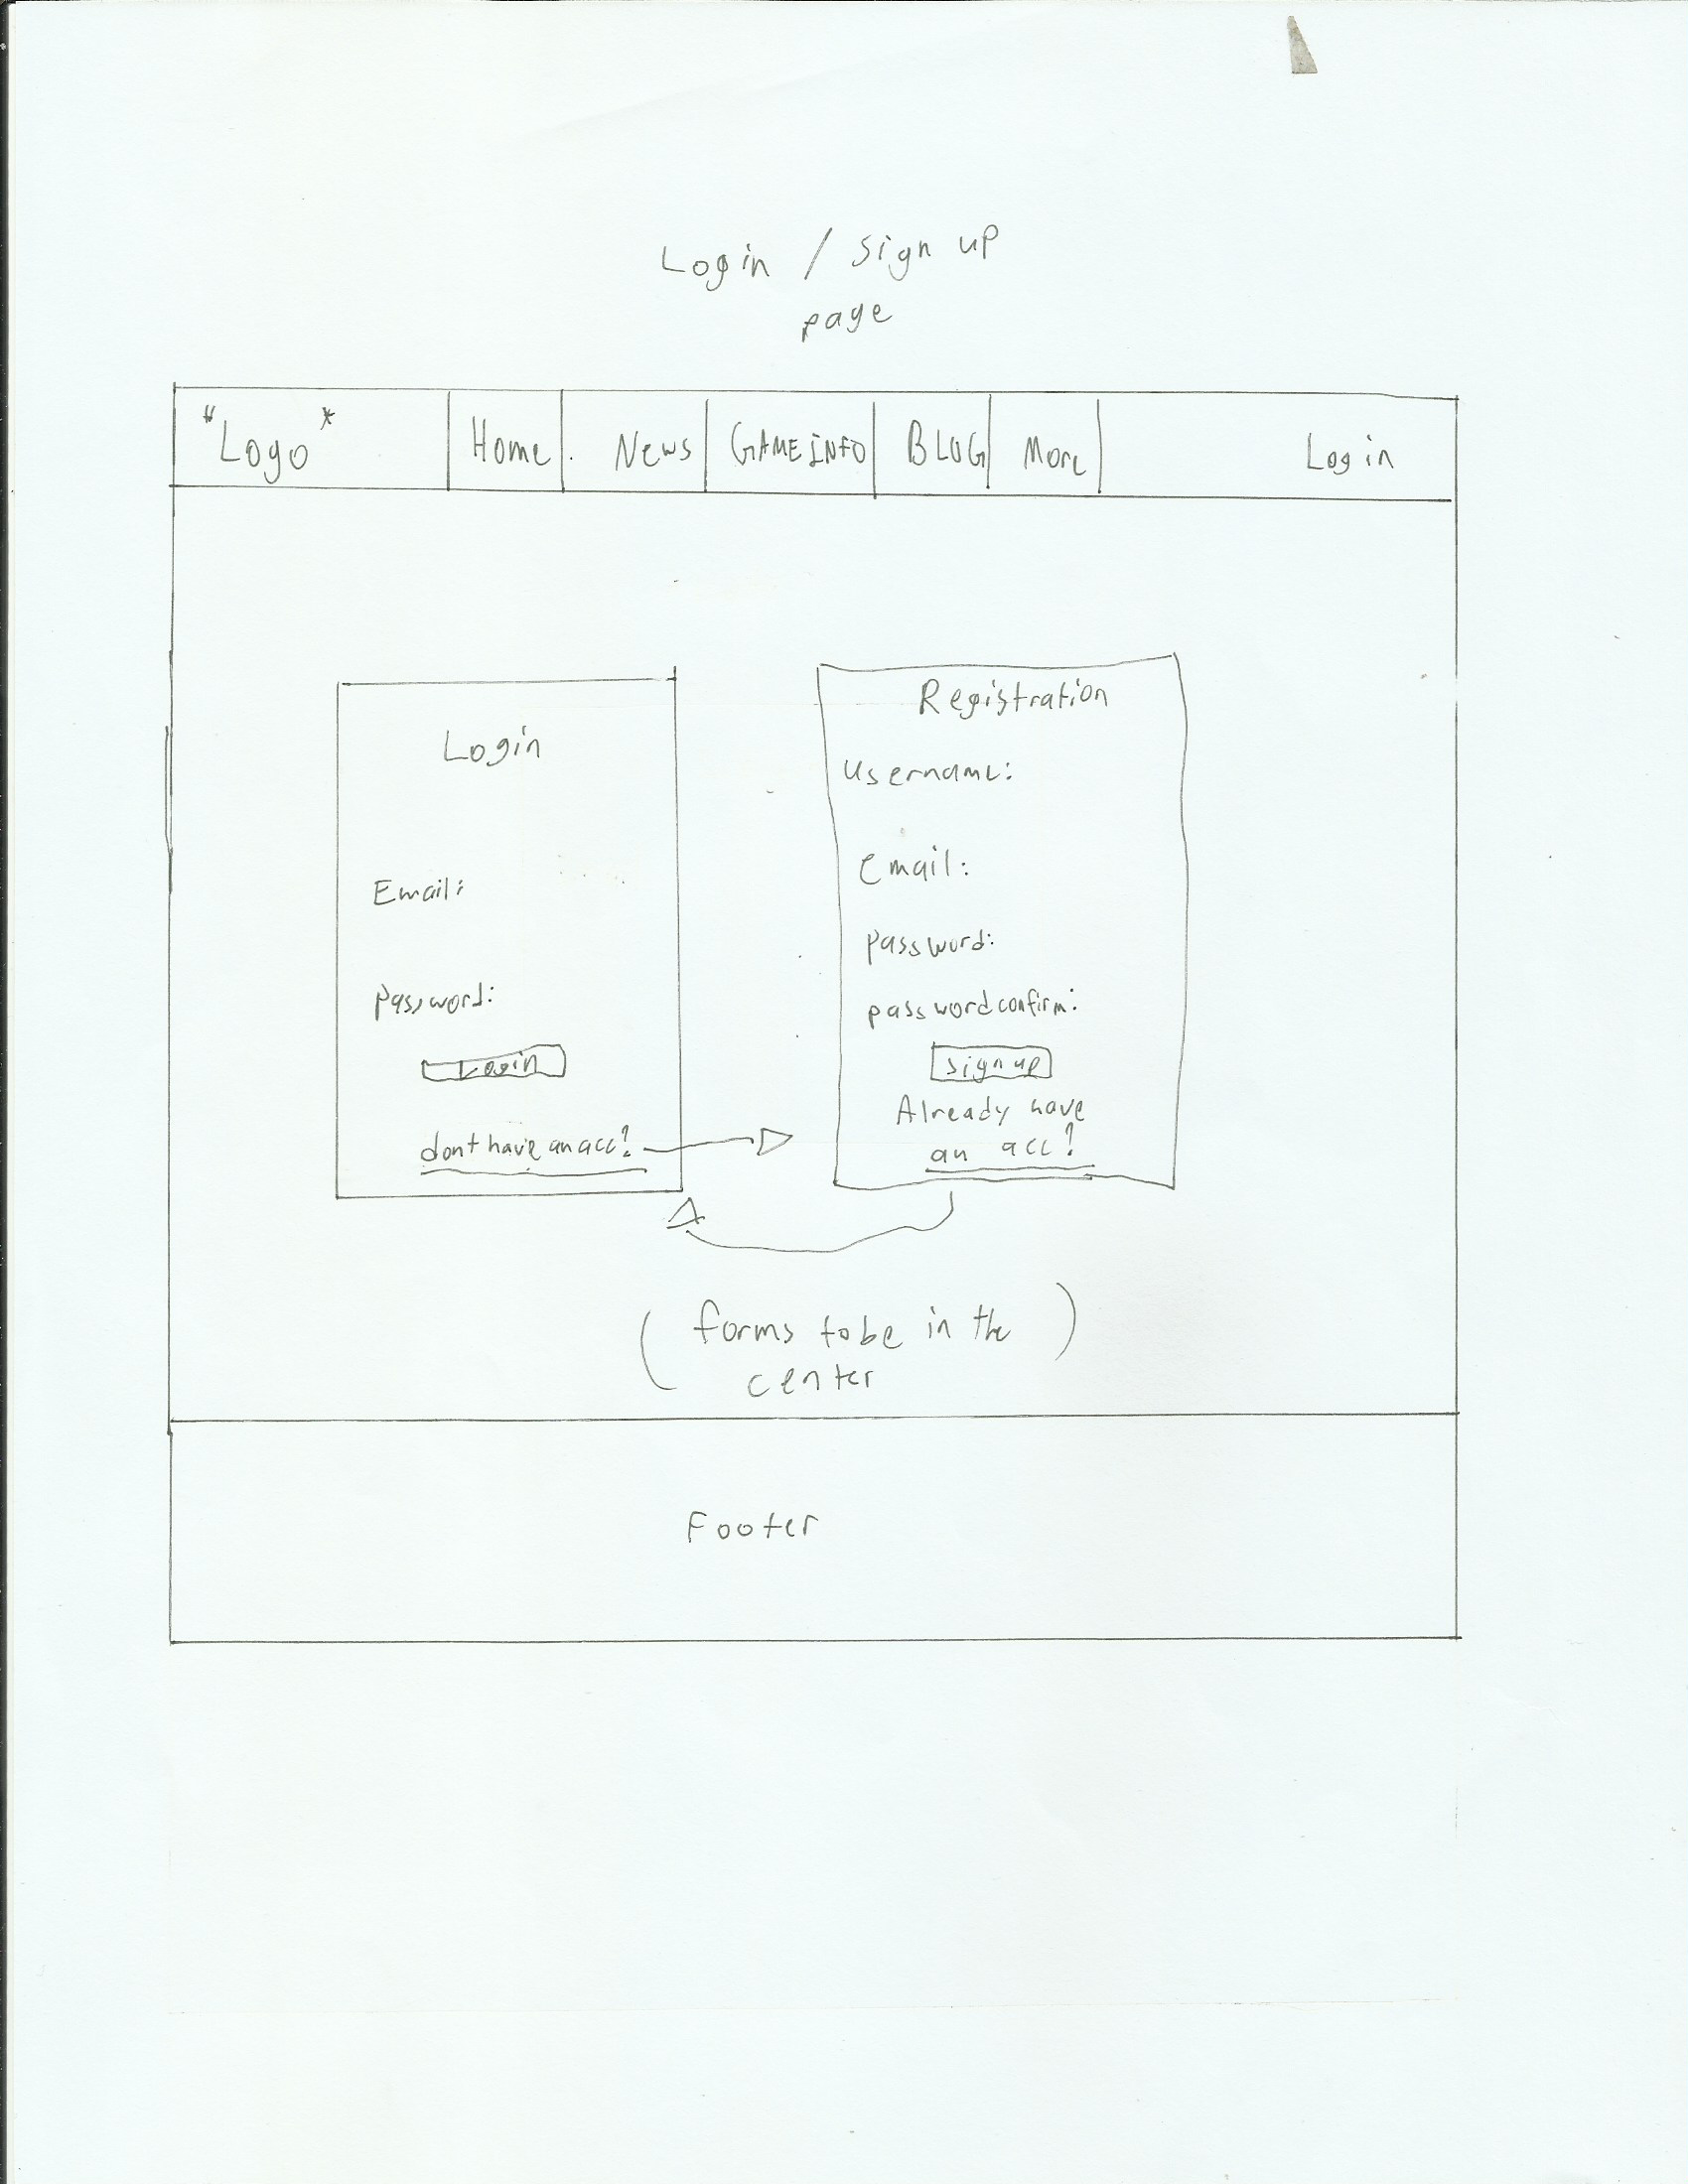 Login / Sign up
page
"Logo*
Home. News GAMEINFO BLOG More Login
Login
Email:
password:
Login
dont have an acc?
Registration
Username:
Email:
password:
password confirm:
sign up
Already have
an acc?
(forms to be in the)
center
Footer